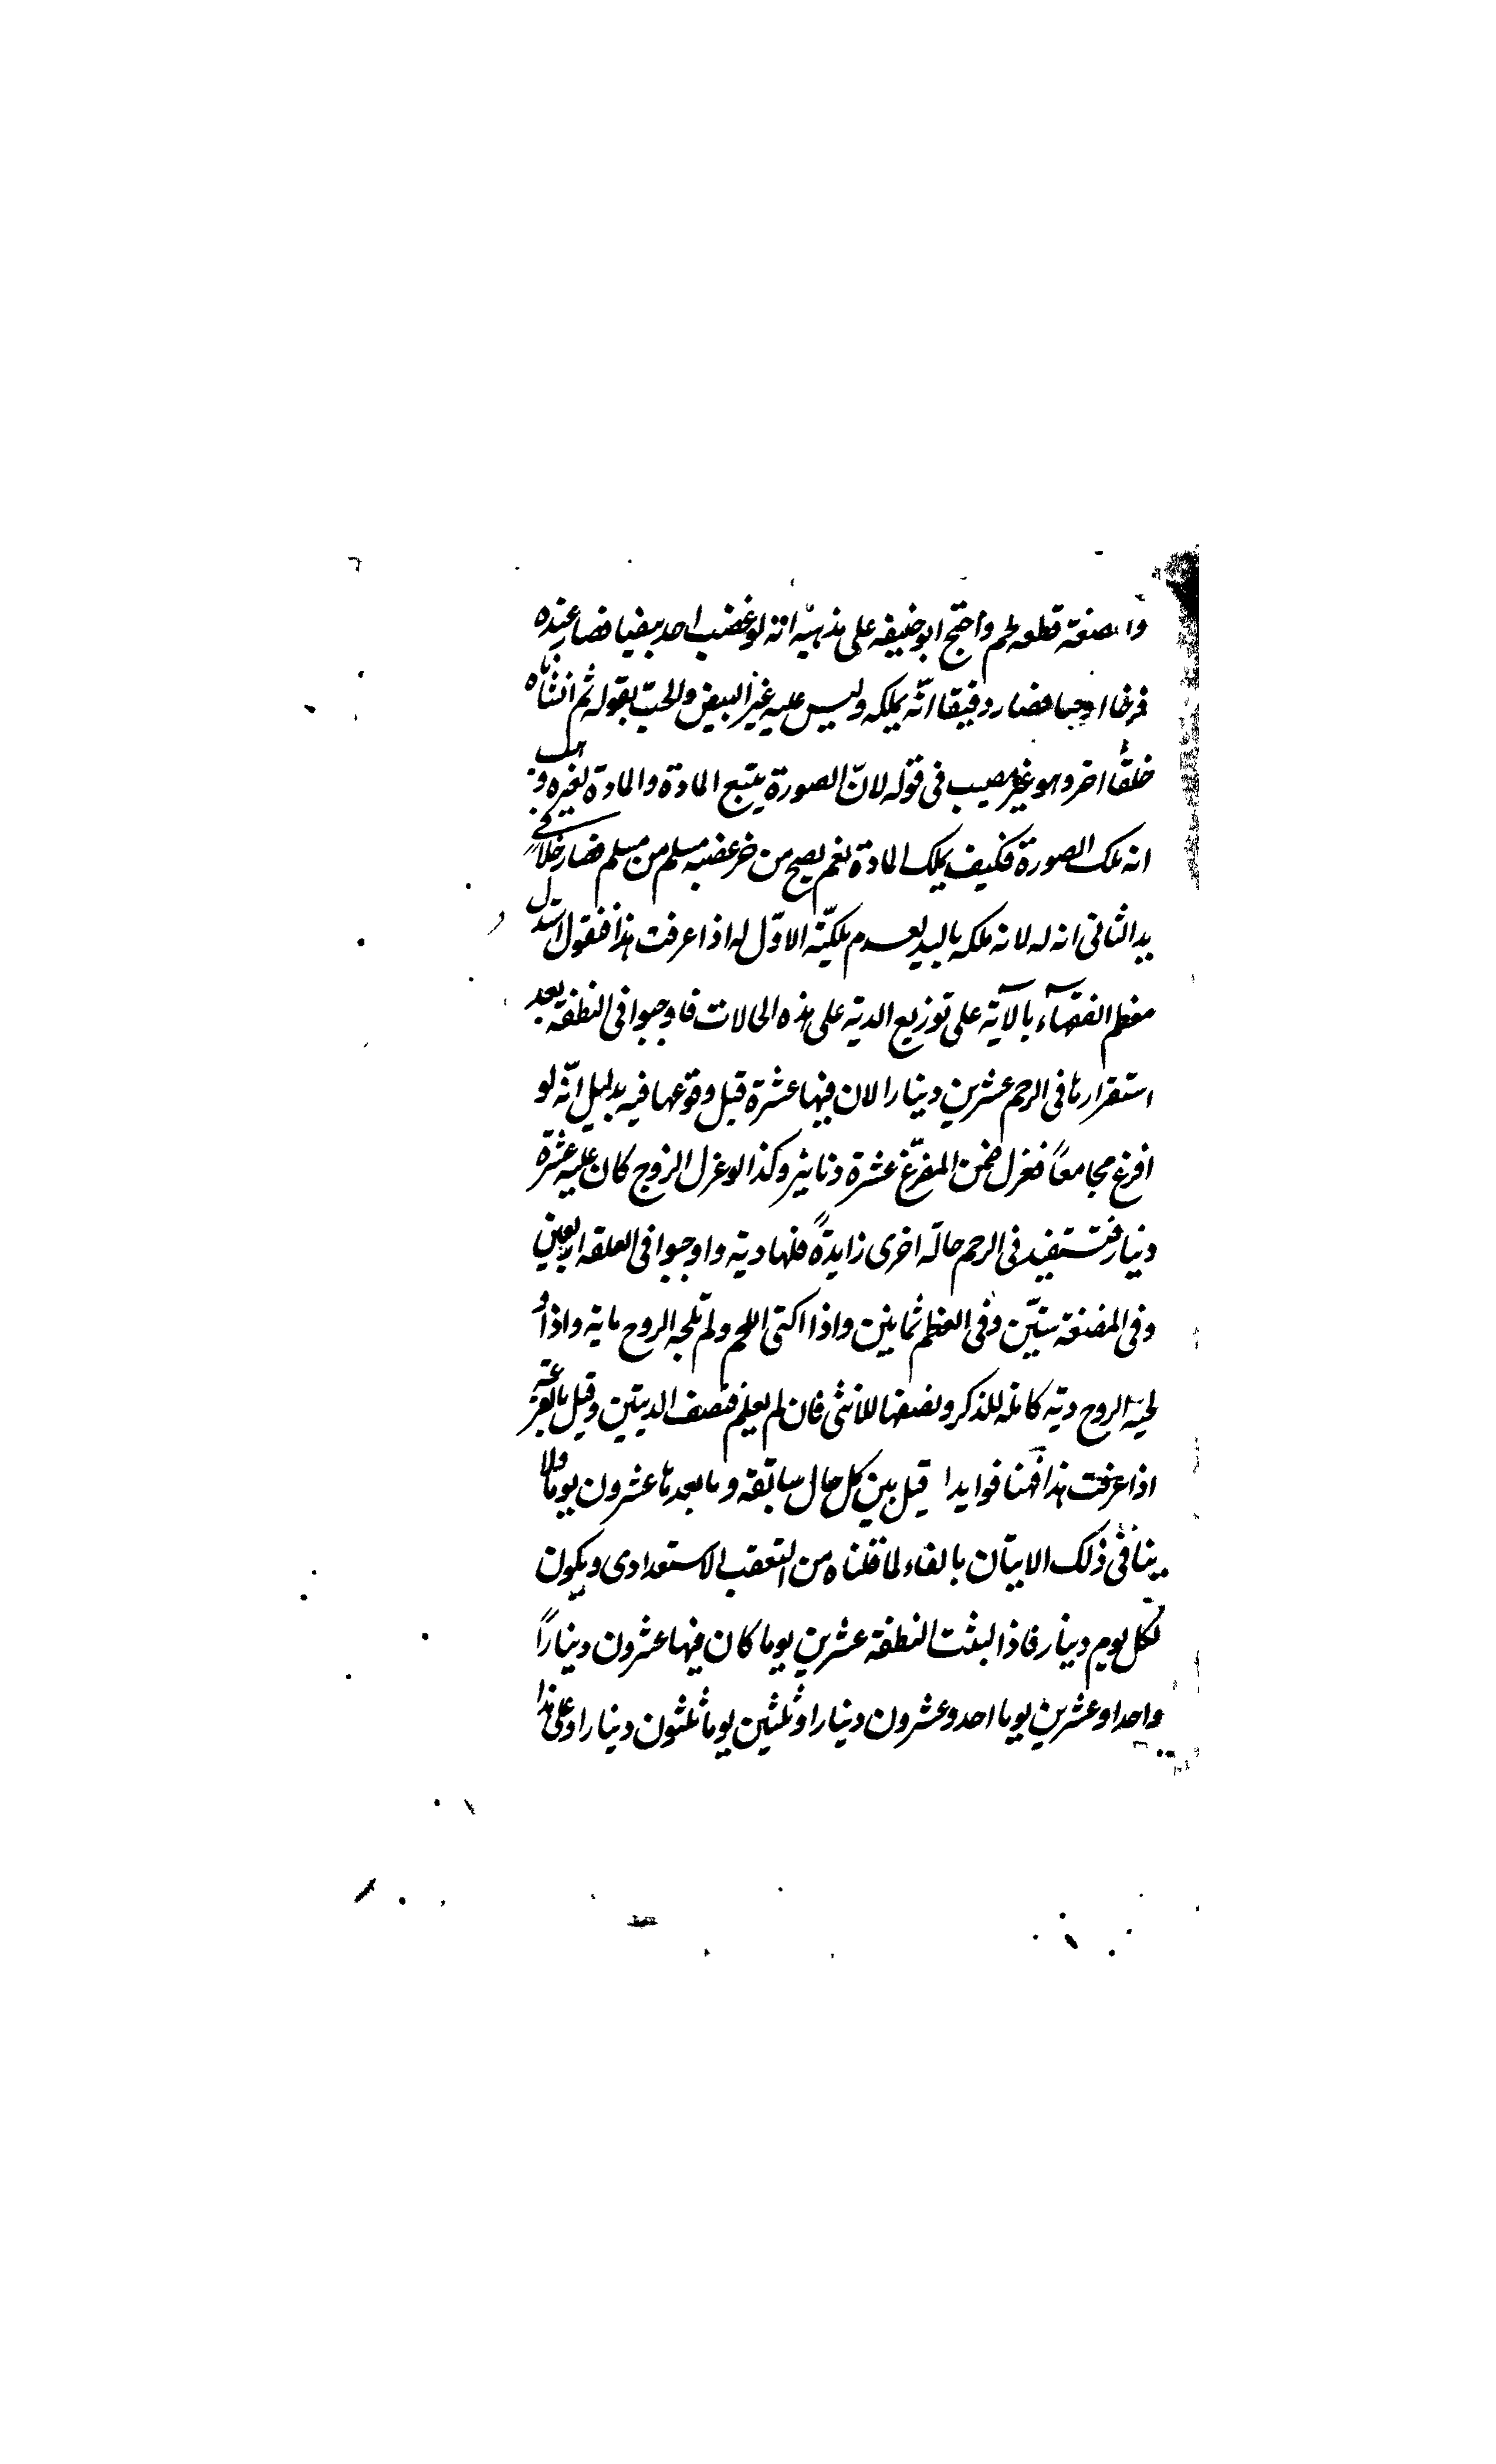 والمضغة قطعة لحم واحتج ابو حنيفه على مذهبه انه لو غصب احد بيضا فصار عنده
فرخا او حبا فصار دقيقا انّه يملكه وليس عليه غير البيض والحبّ بقوله ثم انشاناه
خلقًا اخر وهو غير مصيب فى قوله لانّ الصورة يتبع المادة والمادة لغيره وهب
انه ملك الصورة فكيف يملك المادة نعم يصح من خمر غصبه مسلم من مسلم فصار خلا فى
يد الثانى انه له لانه ملكه باليد لعدم ملكيّة الاوّل له اذا عرفت هذا فنقول استدل
معظم الفقهآء بالآية على توزيع الدية على هذه الحالات فاوجبوا فى النطفة بعد
استقرارها فى الرحم عشرين دينارا لان فيها عشرة قبل وقوعها فيه بدليل انّه لو
افرغ مجامعًا فعزل ضمن المفزّع عشرة دنانير وكذا لو عزل الزوج كان عليه عشرة
دنيار فتستفيد فى الرحم حالة اخرى زايدةً فلها دية واوجبوا فى العلقه اربعين
وفى المضغة ستيّن وفى العظم ثمانين واذا اكتسى اللحم ولم تلجه الروح ماية واذا و
لجته الروح دية كاملة للذكر ونصفها للانثى فان لم يعلم فنصف الديتين وقيل بالقرعة
اذا عرفت هذا فهنا فوايد ا قيل بين كل حال سابقة وما بعدها عشرون يوما ولا
ينافى ذلك الاتيان بالفاء لما قلناه من التعقب الاستعدادى ويكون
لكل يوم دينار فاذا لبثت النطفة عشرين يوما كان فيها عشرون دينارًا
واحدا وعشرين يوما احد وعشرون دنيارا وثلثين يوما ثلثون دينارا وعلى هذا